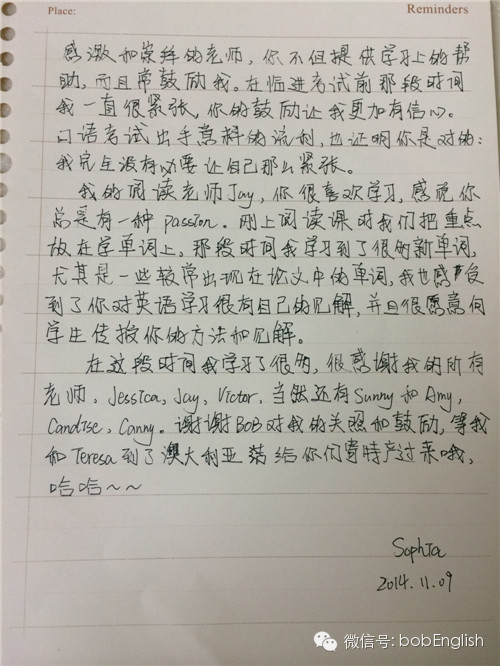 Place:
Reminders
感激和崇拜的老师,你不但提供学习上的帮
助,而且常鼓励我。在临进考试前那段时间
我一直很紧张,你的鼓励让我更加有信心。
口语考试出乎意料的流利,也证明你是对的:
我完全没有必要让自己那么紧张。
我的阅读老师Jay,你很喜欢学习,感觉你
总是有一种passion。刚上阅读课时我们把重点
放在学单词上,那段时间我学习到了很多新单词,
尤其是一些较常出现在论文中的单词,我也感受
到了你对英语学习很有自己的见解,并且很愿意向
学生传授你的方法和见解。
在这段时间我学习了很多,很感谢我的所有
老师,Jessica,Jay,Victor,当然还有Sunny和Amy,
Candise,Canny。谢谢BOB对我的关照和鼓励,等我
和Teresa到了澳大利亚给你们寄特产过来哦,
哈哈~~
Sophia
2014.11.09
微信号: bobEnglish